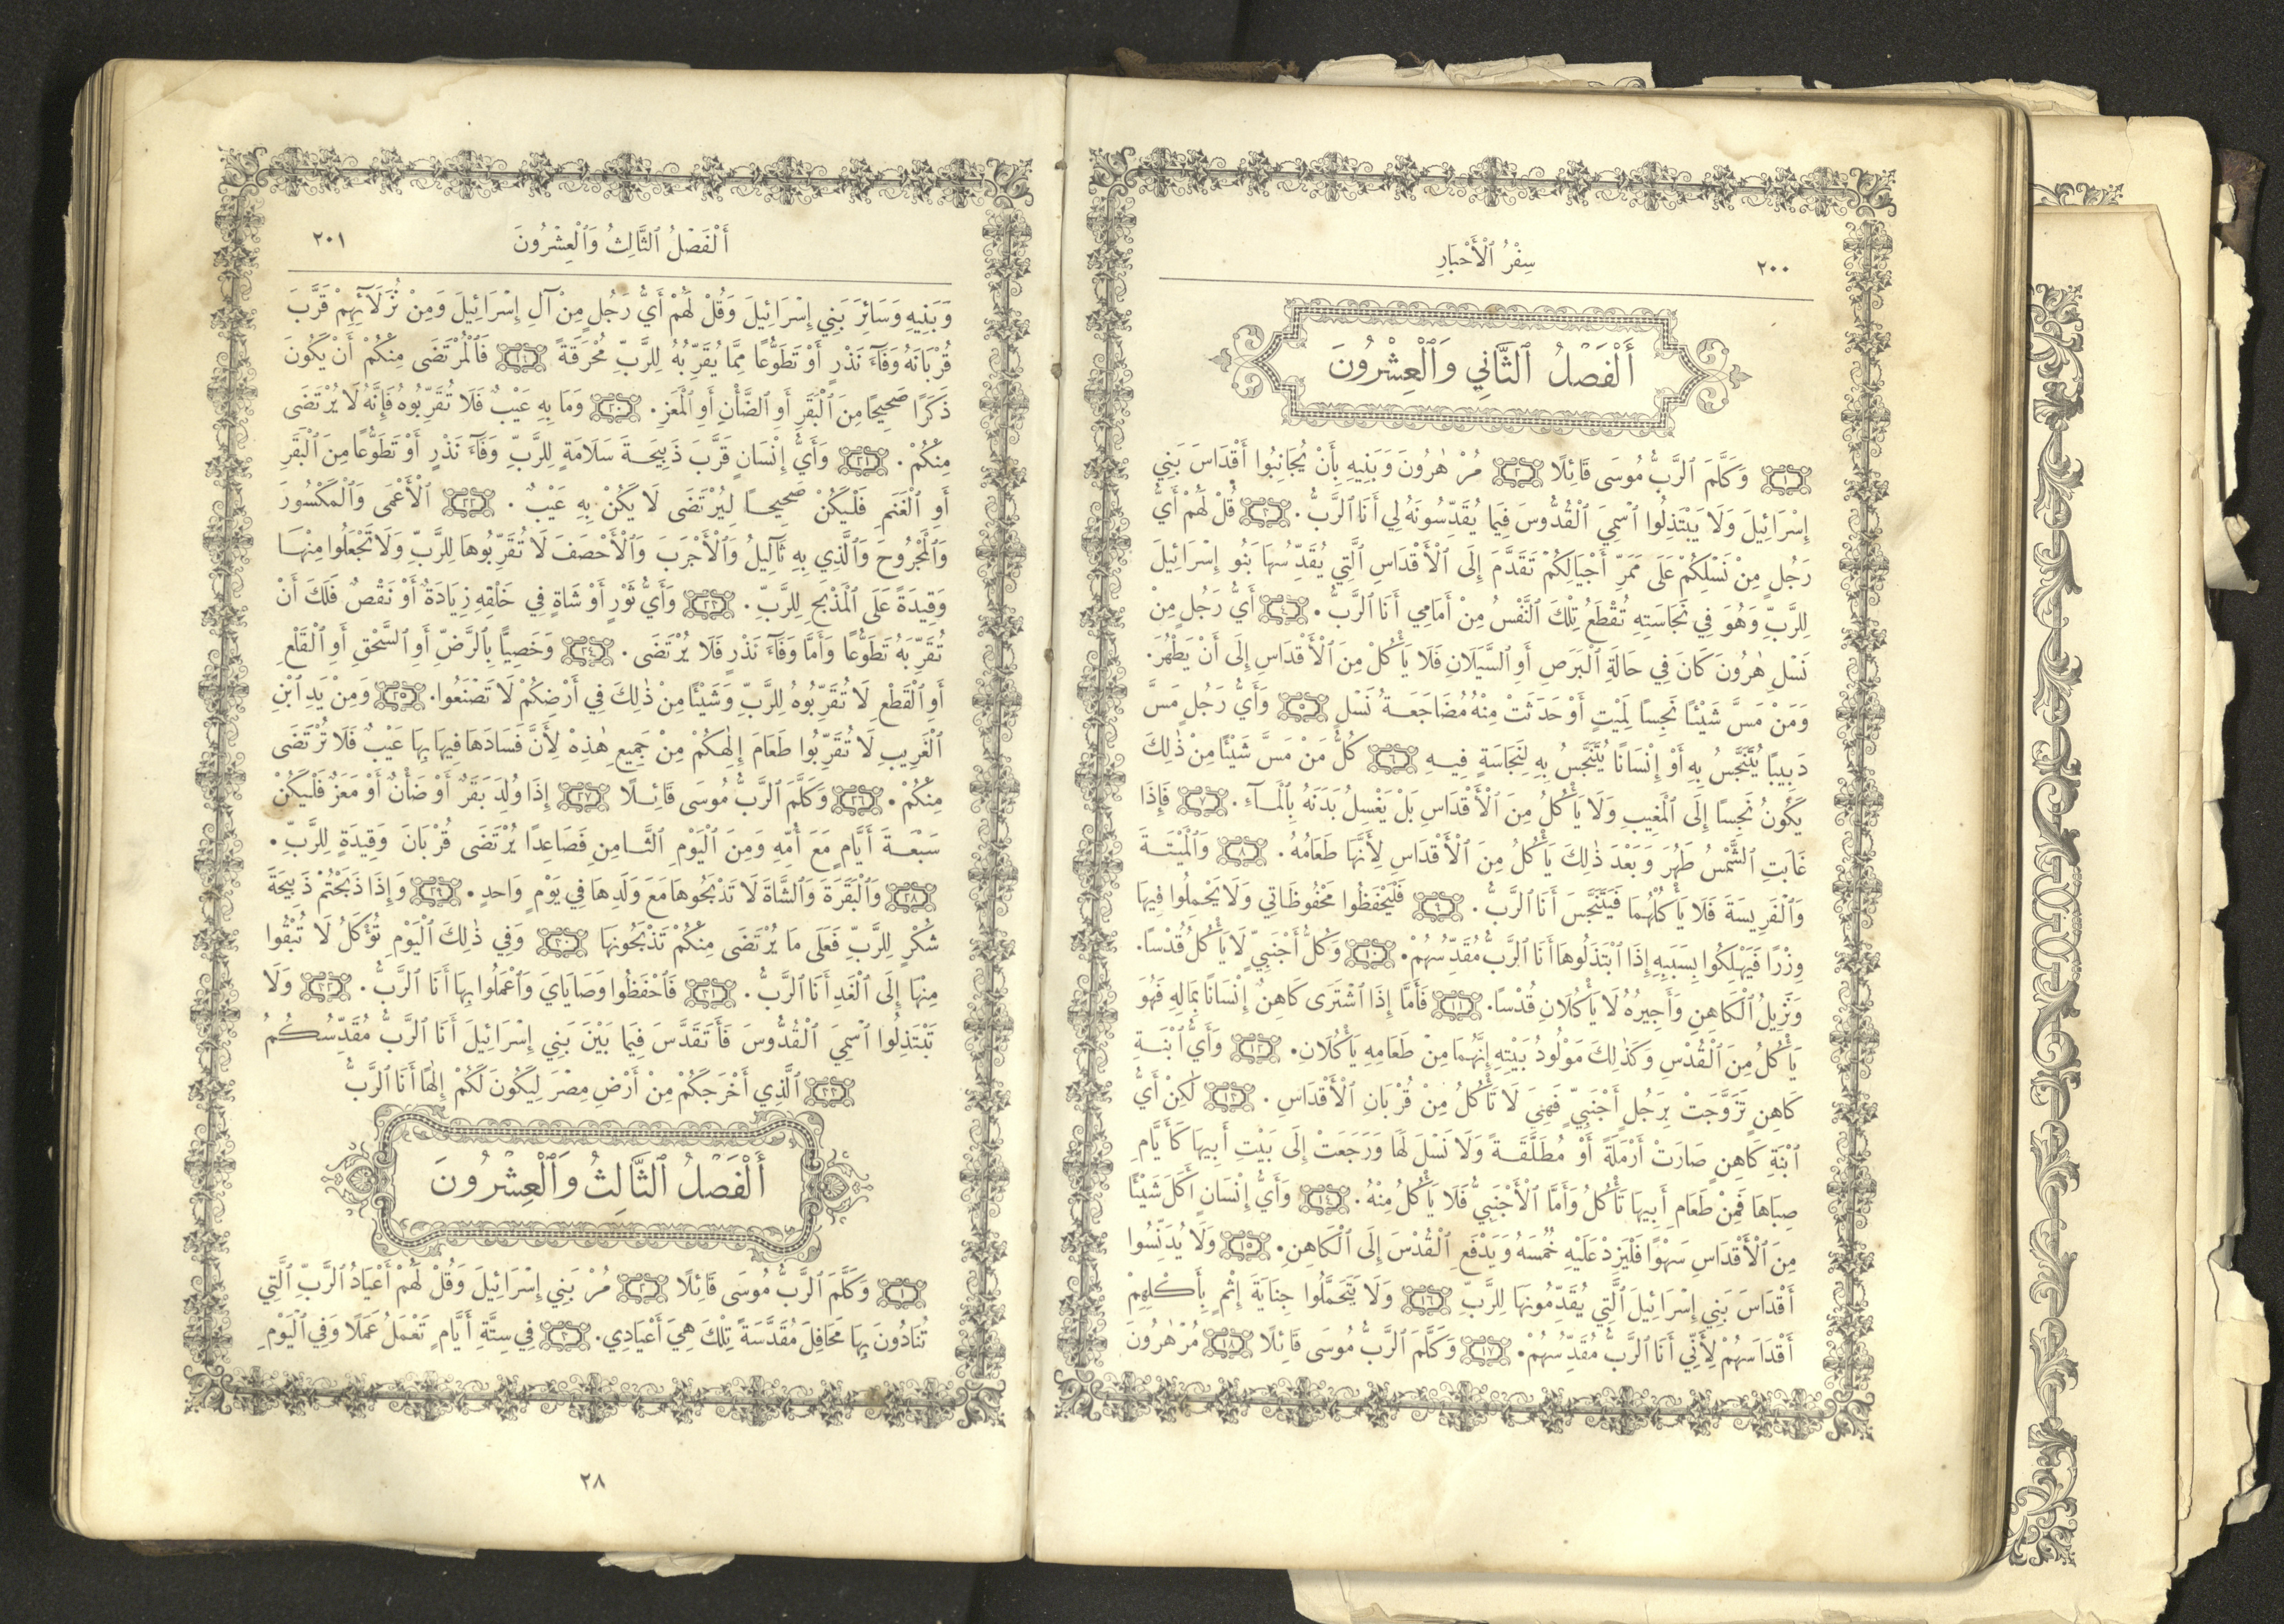 ٢٠٠
سِفْرُ ٱلْأَحْبَارِ
أَلْفَصْلُ ٱلثَّانِي وَٱلْعِشْرُونَ
١ وَكَلَّمَ ٱلرَّبُّ مُوسَى قَائِلًا ٢ مُرْ هٰرُونَ وَبَنِيهِ بِأَنْ يُجَانِبُوا أَقْدَاسَ بَنِي
إِسْرَائِيلَ وَلَا يَبْتَذِلُوا ٱسْمِيَ ٱلْقُدُّوسَ فِيمَا يُقَدِّسُونَهُ لِي أَنَا ٱلرَّبُّ. ٣ قُلْ لَهُمْ أَيُّ
رَجُلٍ مِنْ نَسْلِكُمْ عَلَى مَمَرِّ أَجْيَالِكُمْ تَقَدَّمَ إِلَى ٱلْأَقْدَاسِ ٱلَّتِي يُقَدِّسُهَا بَنُو إِسْرَائِيلَ
لِلرَّبِّ وَهُوَ فِي نَجَاسَتِهِ تُقْطَعُ تِلْكَ ٱلنَّفْسُ مِنْ أَمَامِي أَنَا ٱلرَّبُّ. ٤ أَيُّ رَجُلٍ مِنْ
نَسْلِ هٰرُونَ كَانَ فِي حَالَةِ ٱلْبَرَصِ أَوِ ٱلسَّيَلَانِ فَلَا يَأْكُلْ مِنَ ٱلْأَقْدَاسِ إِلَى أَنْ يَطْهُرَ.
وَمَنْ مَسَّ شَيْئًا نَجِسًا لِمَيْتٍ أَوْ حَدَثَتْ مِنْهُ مُضَاجَعَةُ نَسْلٍ ٥ وَأَيُّ رَجُلٍ مَسَّ
دَبِيبًا يُتَنَجَّسُ بِهِ أَوْ إِنْسَانًا يُتَنَجَّسُ بِهِ لِنَجَاسَةٍ فِيهِ ٦ كُلُّ مَنْ مَسَّ شَيْئًا مِنْ ذٰلِكَ
يَكُونُ نَجِسًا إِلَى ٱلْمَغِيبِ وَلَا يَأْكُلُ مِنَ ٱلْأَقْدَاسِ بَلْ يَغْسِلُ بَدَنَهُ بِٱلْمَآءِ. ٧ فَإِذَا
غَابَتِ ٱلشَّمْسُ طَهُرَ وَبَعْدَ ذٰلِكَ يَأْكُلُ مِنَ ٱلْأَقْدَاسِ لِأَنَّهَا طَعَامُهُ. ٨ وَٱلْمَيْتَةَ
وَٱلْفَرِيسَةَ فَلَا يَأْكُلْهُمَا فَيَتَنَجَّسَ أَنَا ٱلرَّبُّ. ٩ فَلْيَحْفَظُوا مَحْفُوظَاتِي وَلَا يَحْمِلُوا فِيهَا
وِزْرًا فَيَهْلِكُوا بِسَبَبِهِ إِذَا ٱبْتَذَلُوهَا أَنَا ٱلرَّبُّ مُقَدِّسُهُمْ. ١٠ وَكُلُّ أَجْنَبِيٍّ لَا يَأْكُلْ قُدْسًا.
وَنَزِيلُ ٱلْكَاهِنِ وَأَجِيرُهُ لَا يَأْكُلَانِ قُدْسًا. ١١ فَأَمَّا إِذَا ٱشْتَرَى كَاهِنٌ إِنْسَانًا بِمَالِهِ فَهُوَ
يَأْكُلُ مِنَ ٱلْقُدْسِ وَكَذٰلِكَ مَوْلُودُ بَيْتِهِ إِنَّهُمَا مِنْ طَعَامِهِ يَأْكُلَانِ. ١٢ وَأَيُّ ٱبْنَةِ
كَاهِنٍ تَزَوَّجَتْ بِرَجُلٍ أَجْنَبِيٍّ فَهِيَ لَا تَأْكُلُ مِنْ قُرْبَانِ ٱلْأَقْدَاسِ. ١٣ لٰكِنْ أَيُّ
ٱبْنَةِ كَاهِنٍ صَارَتْ أَرْمَلَةً أَوْ مُطَلَّقَةً وَلَا نَسْلَ لَهَا وَرَجَعَتْ إِلَى بَيْتِ أَبِيهَا كَأَيَّامِ
صِبَاهَا فَمِنْ طَعَامِ أَبِيهَا تَأْكُلُ وَأَمَّا ٱلْأَجْنَبِيُّ فَلَا يَأْكُلُ مِنْهُ. ١٤ وَأَيُّ إِنْسَانٍ أَكَلَ شَيْئًا
مِنَ ٱلْأَقْدَاسِ سَهْوًا فَلْيَزِدْ عَلَيْهِ خُمْسَهُ وَيَدْفَعِ ٱلْقُدْسَ إِلَى ٱلْكَاهِنِ. ١٥ وَلَا يُدَنِّسُوا
أَقْدَاسَ بَنِي إِسْرَائِيلَ ٱلَّتِي يُقَدِّمُونَهَا لِلرَّبِّ ١٦ وَلَا يَتَحَمَّلُوا جِنَايَةَ إِثْمٍ بِأَكْلِهِمْ
أَقْدَاسَهُمْ لِأَنِّي أَنَا ٱلرَّبُّ مُقَدِّسُهُمْ. ١٧ وَكَلَّمَ ٱلرَّبُّ مُوسَى قَائِلًا ١٨ مُرْ هٰرُونَ
أَلْفَصْلُ ٱلثَّالِثُ وَٱلْعِشْرُونَ
٢٠١
وَبَنِيهِ وَسَائِرَ بَنِي إِسْرَائِيلَ وَقُلْ لَهُمْ أَيُّ رَجُلٍ مِنْ آلِ إِسْرَائِيلَ وَمِنْ نُزَلَآئِهِمْ قَرَّبَ
قُرْبَانَهُ وَفَآءَ نَذْرٍ أَوْ تَطَوُّعًا مِمَّا يُقَرِّبُهُ لِلرَّبِّ مُحْرَقَةً ١٩ فَٱلْمُرْتَضَى مِنْكُمْ أَنْ يَكُونَ
ذَكَرًا صَحِيحًا مِنَ ٱلْبَقَرِ أَوِ ٱلضَّأْنِ أَوِ ٱلْمَعَزِ. ٢٠ وَمَا بِهِ عَيْبٌ فَلَا تُقَرِّبُوهُ فَإِنَّهُ لَا يُرْتَضَى
مِنْكُمْ. ٢١ وَأَيُّ إِنْسَانٍ قَرَّبَ ذَبِيحَةَ سَلَامَةٍ لِلرَّبِّ وَفَآءَ نَذْرٍ أَوْ تَطَوُّعًا مِنَ ٱلْبَقَرِ
أَوِ ٱلْغَنَمِ فَلْيَكُنْ صَحِيحًا لِيُرْتَضَى لَا يَكُنْ بِهِ عَيْبٌ. ٢٢ ٱلْأَعْمَى وَٱلْمَكْسُورَ
وَٱلْمَجْرُوحَ وَٱلَّذِي بِهِ ثَآلِيلُ وَٱلْأَجْرَبَ وَٱلْأَحْصَفَ لَا تُقَرِّبُوهَا لِلرَّبِّ وَلَا تَجْعَلُوا مِنْهَا
وَقِيدَةً عَلَى ٱلْمَذْبَحِ لِلرَّبِّ. ٢٣ وَأَيُّ ثَوْرٍ أَوْ شَاةٍ فِي خَلْقِهِ زِيَادَةٌ أَوْ نَقْصٌ فَلَكَ أَنْ
تُقَرِّبَهُ تَطَوُّعًا وَأَمَّا وَفَآءَ نَذْرٍ فَلَا يُرْتَضَى. ٢٤ وَخَصِيًّا بِٱلرَّضِّ أَوِ ٱلسَّحْقِ أَوِ ٱلْقَلْعِ
أَوِ ٱلْقَطْعِ لَا تُقَرِّبُوهُ لِلرَّبِّ وَشَيْئًا مِنْ ذٰلِكَ فِي أَرْضِكُمْ لَا تَصْنَعُوا. ٢٥ وَمِنْ يَدِ ٱبْنِ
ٱلْغَرِيبِ لَا تُقَرِّبُوا طَعَامَ إِلٰهِكُمْ مِنْ جَمِيعِ هٰذِهْ لِأَنَّ فَسَادَهَا فِيهَا بِهَا عَيْبٌ فَلَا تُرْتَضَى
مِنْكُمْ. ٢٦ وَكَلَّمَ ٱلرَّبُّ مُوسَى قَائِلًا ٢٧ إِذَا وُلِدَ بَقَرٌ أَوْ ضَأْنٌ أَوْ مَعَزٌ فَلْيَكُنْ
سَبْعَةَ أَيَّامٍ مَعَ أُمِّهِ وَمِنَ ٱلْيَوْمِ ٱلثَّامِنِ فَصَاعِدًا يُرْتَضَى قُرْبَانَ وَقِيدَةٍ لِلرَّبِّ.
٢٨ وَٱلْبَقَرَةَ وَٱلشَّاةَ لَا تَذْبَحُوهَا مَعَ وَلَدِهَا فِي يَوْمٍ وَاحِدٍ. ٢٩ وَإِذَا ذَبَحْتُمْ ذَبِيحَةَ
شُكْرٍ لِلرَّبِّ فَعَلَى مَا يُرْتَضَى مِنْكُمْ تَذْبَحُونَهَا ٣٠ وَفِي ذٰلِكَ ٱلْيَوْمِ تُؤْكَلُ لَا تُبْقُوا
مِنْهَا إِلَى ٱلْغَدِ أَنَا ٱلرَّبُّ. ٣١ فَٱحْفَظُوا وَصَايَايَ وَٱعْمَلُوا بِهَا أَنَا ٱلرَّبُّ. ٣٢ وَلَا
تَبْتَذِلُوا ٱسْمِيَ ٱلْقُدُّوسَ فَأَتَقَدَّسَ فِيمَا بَيْنَ بَنِي إِسْرَائِيلَ أَنَا ٱلرَّبُّ مُقَدِّسُكُمُ
٣٣ ٱلَّذِي أَخْرَجَكُمْ مِنْ أَرْضِ مِصْرَ لِيَكُونَ لَكُمْ إِلٰهًا أَنَا ٱلرَّبُّ
أَلْفَصْلُ ٱلثَّالِثُ وَٱلْعِشْرُونَ
١ وَكَلَّمَ ٱلرَّبُّ مُوسَى قَائِلًا ٢ مُرْ بَنِي إِسْرَائِيلَ وَقُلْ لَهُمْ أَعْيَادُ ٱلرَّبِّ ٱلَّتِي
تُنَادُونَ بِهَا مَحَافِلَ مُقَدَّسَةً تِلْكَ هِيَ أَعْيَادِي. ٣ فِي سِتَّةِ أَيَّامٍ تَعْمَلُ عَمَلًا وَفِي ٱلْيَوْمِ
٢٨